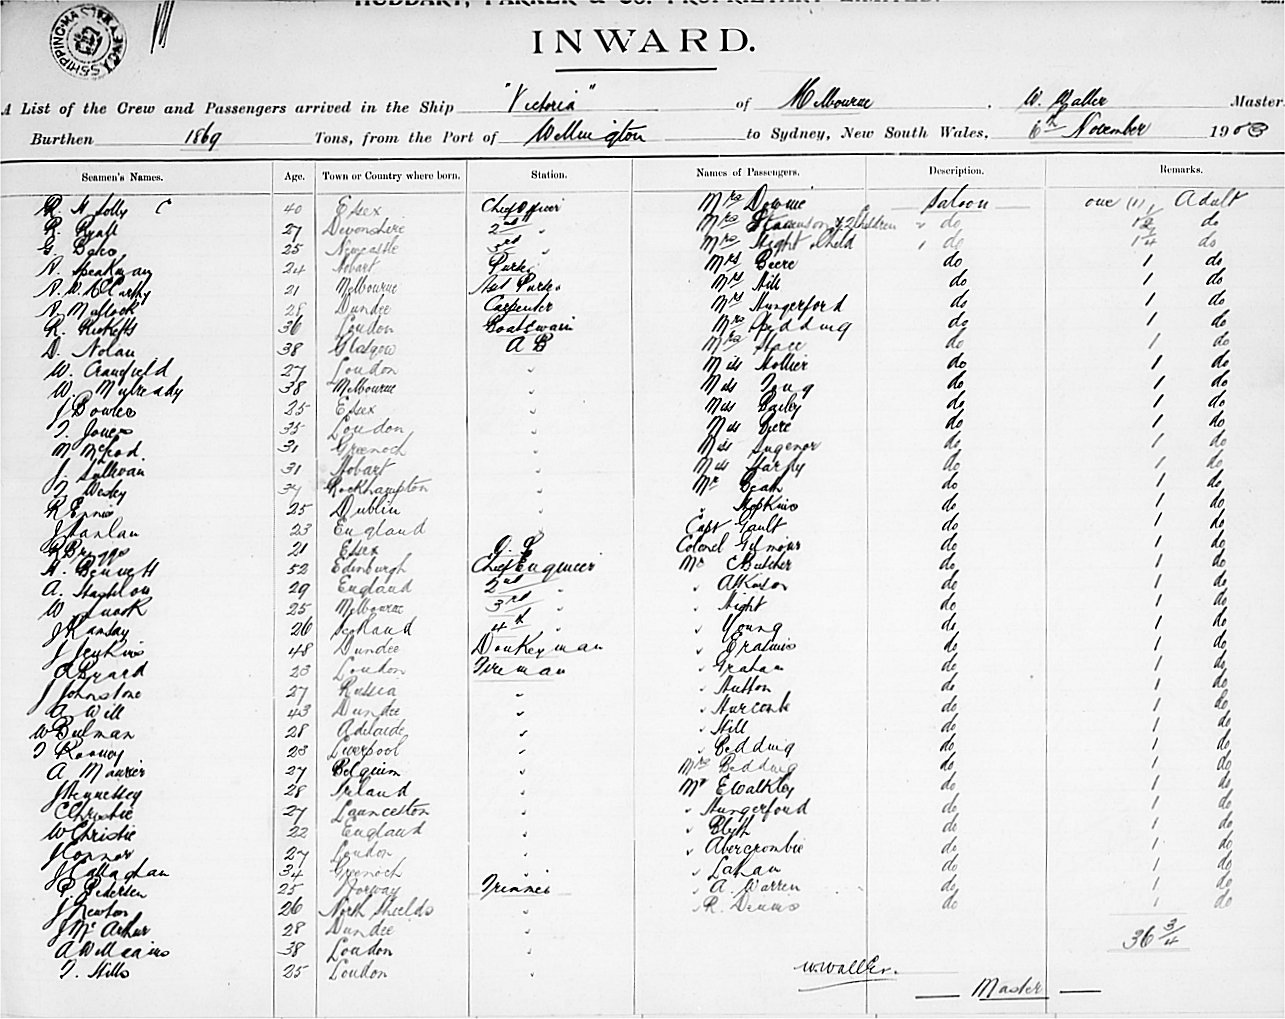 HUDDART, PARKER & CO. PROPRIETARY LIMITED.
SHIPPING MASTER SYDNEY
INWARD.
A List of the Crew and Passengers arrived in the Ship "Victoria" of Melbourne. W. Waller Master
Burthen 1869 Tons, from the Port of Wellington to Sydney, New South Wales, 6th November 1903
Seamen's Names. Age. Town or Country where born. Station. Names of Passengers. Description. Remarks.
R. H Jolly C 40 Essex Chief Officer Mrs Downie Saloon one (1), Adult
R. Pyatt 27 Devonshire 2nd " Mrs Stevenson & 2 Children " do 1 2/2 do
G. 25 Newcastle 3rd " Mrs Night & Child " do 1 1/4 do
A. Speakman 24 Hobart Purser Mrs Beere do 1 do
A. W. McCarthy 21 Melbourne Ast Purser Mrs Hill do 1 do
A Mullock 28 Dundee Carpenter Mrs Hungerford do 1 do
R. Ricketts 36 London Boatswain Mrs Spedding do 1 do
D. Nolan 38 Glasgow A B Mrs Stace do 1 do
W. Cranfield 27 London " Miss Hollier do 1 do
W. Mulready 38 Melbourne " Miss do 1 do
J Bowles 25 Essex " Miss Bailey do 1 do
T. Jones 35 London " Miss Beere do 1 do
M McLeod. 31 Greenock " Miss do 1 do
J. Sullivan 31 Hobart " Miss Harpy do 1 do
T Wesley 34 Rockhampton " Mr Beath do 1 do
R Ennis 25 Dublin " " Hopkins do 1 do
J Hanlan 23 England " Capt Gault do 1 do
R Briggs 21 Essex O. S Colonel Gilmour do 1 do
H. Bennett 52 Edinburgh Chief Engineer Mr C Butcher do 1 do
A. Hazeldon 29 England 2nd " " Atkinson do 1 do
W. Snook 25 Melbourne 3rd " " Night do 1 do
J Ramsay 26 Scotland 4th " " Young do 1 do
J Jenkins 48 Dundee Donkeyman " Erasmus do 1 do
A Beard 23 London Fireman " Graham do 1 do
J Johnstone 27 Russia " " Hutton do 1 do
A Will 43 Dundee " " Hurcomb do 1 do
W Bulman 28 Adelaide " " Hill do 1 do
T Rooney 23 Liverpool " " Bedding do 1 do
A Maurier 27 Belgium " Mrs Bedding do 1 do
J Hennessey 28 Ireland " Mr E Walkley do 1 do
C Christie 27 Launceston " " Hungerford do 1 do
W Christie 22 England " " Blyth do 1 do
J Connor 27 London " " Abercrombie do 1 do
J Callaghan 34 Greenock " " Lahan do 1 do
P Pedersen 25 Norway Trimmer " A. Warren do 1 do
J Newton 26 North Shields " " R. Dennis do 1 do
J McArthur 28 Dundee " 36 3/4
A Williams 38 London "
T. Hills 25 London " W. Waller.
Master